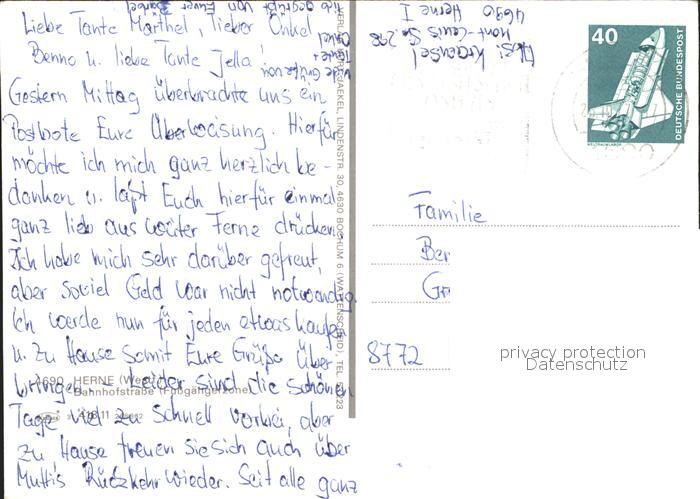 Liebe Tante Marthel, lieber Onkel
Benno u. liebe Tante Jella,
Gestern Mittag überbrachte uns ein
Postbote Eure Überweisung. Hierfür
möchte ich mich ganz herzlich be-
danken u. laßt Euch hierfür einmal
ganz lieb aus weiter Ferne drücken.
Ich habe mich sehr darüber gefreut,
aber soviel Geld war nicht notwendig.
Ich werde nun für jeden etwas kaufen
u. zu Hause somit Eure Grüße über-
bringen. Leider sind die schönen
Tage viel zu schnell vorbei, aber
zu Hause freuen sie sich auch über
Mutti's Rückkehr wieder. Seit alle ganz
lieb gegrüßt von Eurer
4690 HERNE (West)
Bahnhofstraße (Fußgängerzone)
JAEKEL, LINDENSTR. 30, 4630 BOCHUM 6 (WATTENSCHEID), TEL.
Abs:
4690 Herne 1
40
DEUTSCHE BUNDESPOST
WELTRAUMLABOR
Familie
Ber
Ge
8772
privacy protection
Datenschutz